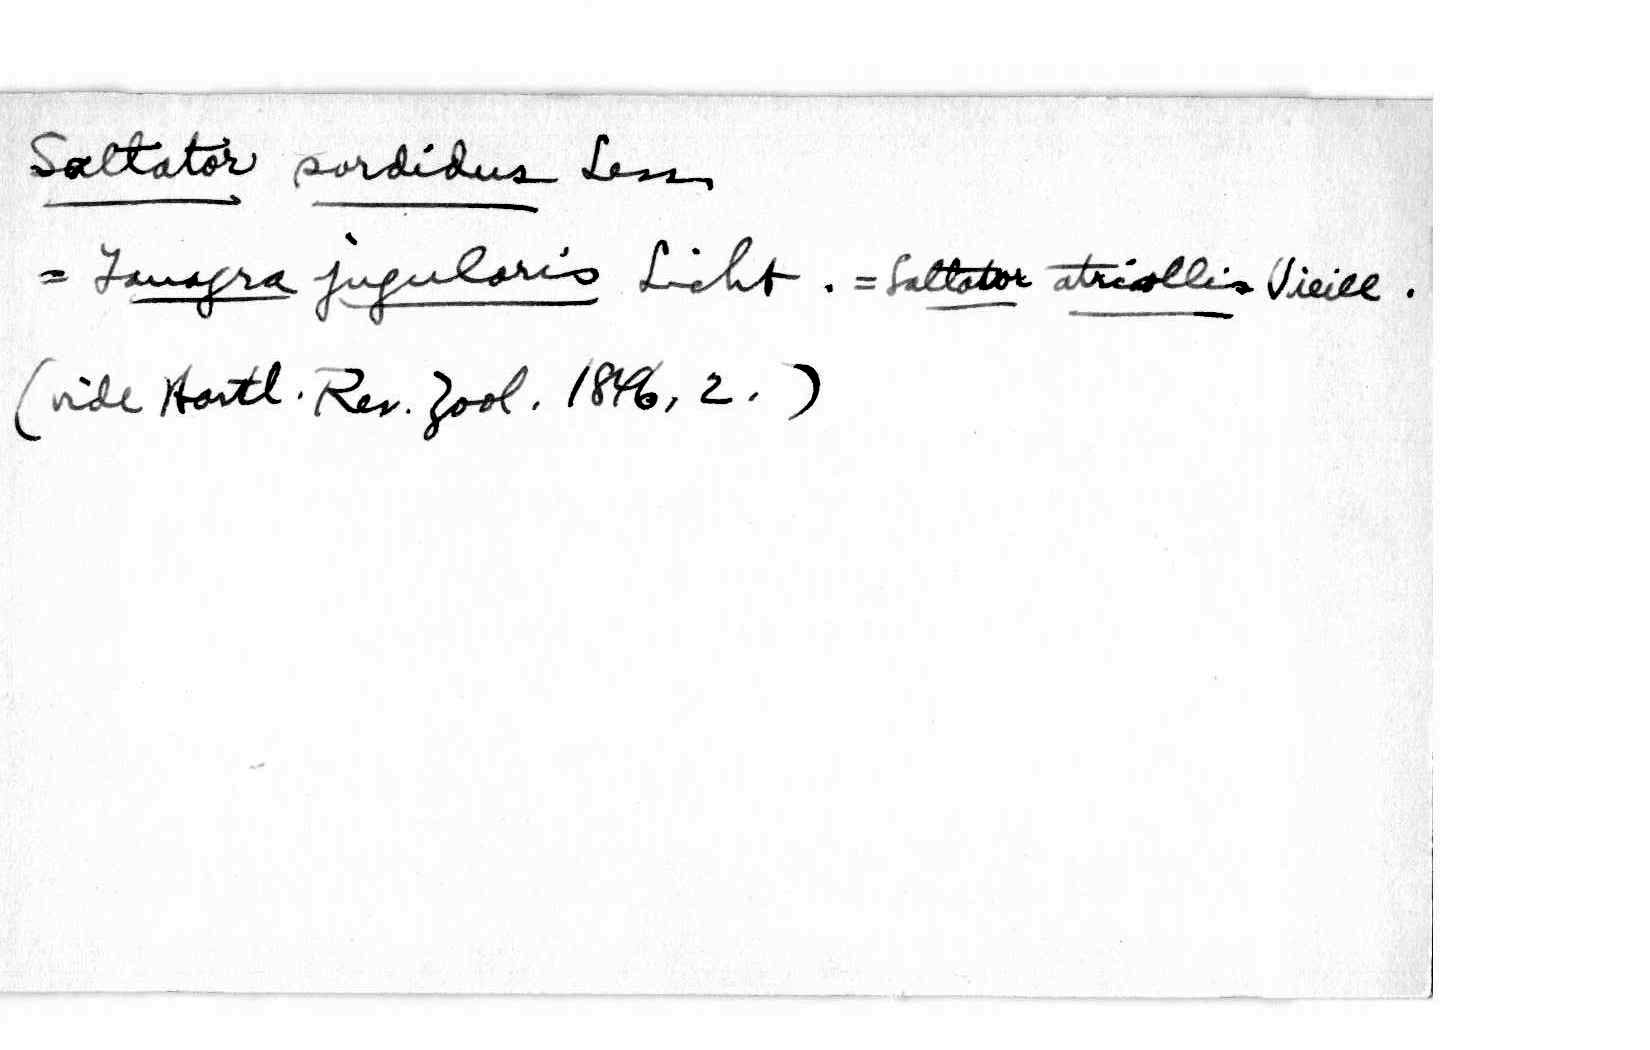 Saltator sordidus Less
= Tanagra jugularis Licht. = Saltator atricollis Vieill.
(vide Hartl. Rev. Zool. 1846, 2.)